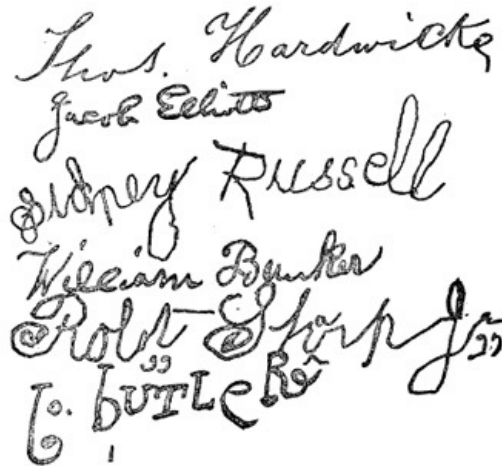 Thos. Hardwicke
Jacob Elliott
Sidney Russell
William Bunker
Robt Sharp Jr
G. bUTLeR